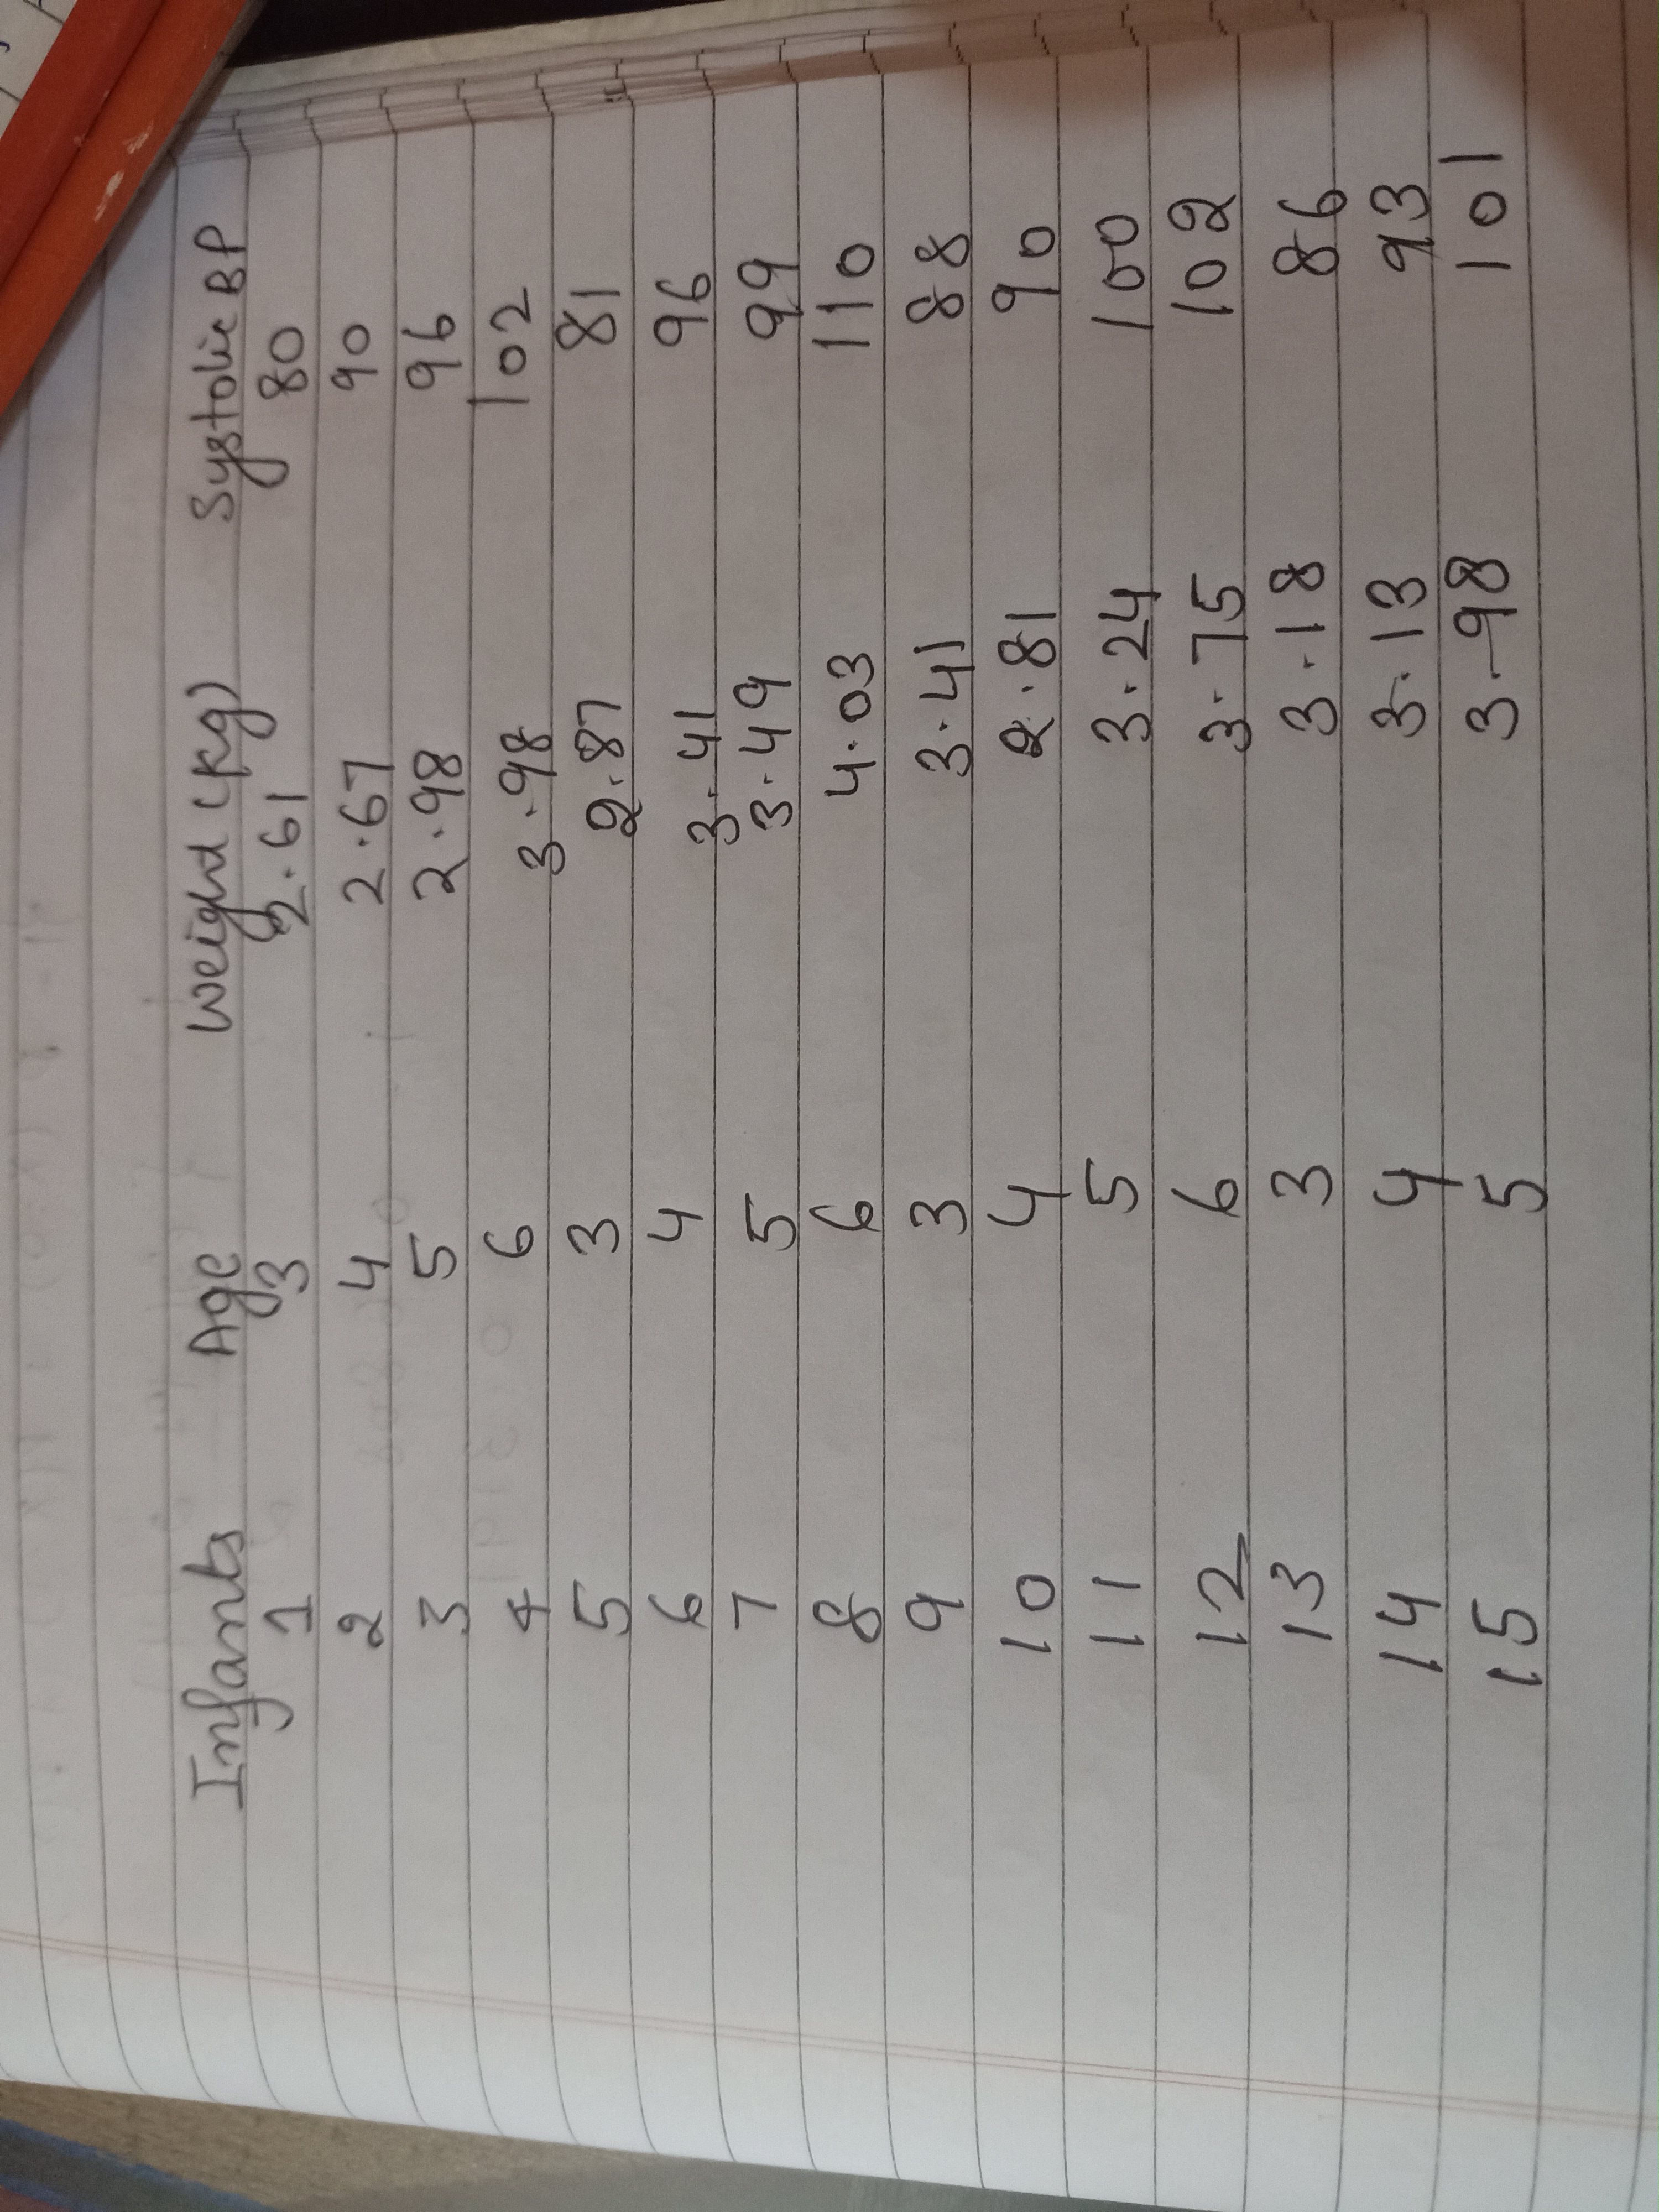 Infants Age Weight (Kg) Systolic BP
1 3 2.61 80
2 4 2.67 90
3 5 2.98 96
4 6 3.98 102
5 3 2.87 81
6 4 3.41 96
7 5 3.49 99
8 6 4.03 110
9 3 3.41 88
10 4 2.81 90
11 5 3.24 100
12 6 3.75 102
13 3 3.18 86
14 4 3.13 93
15 5 3.98 101